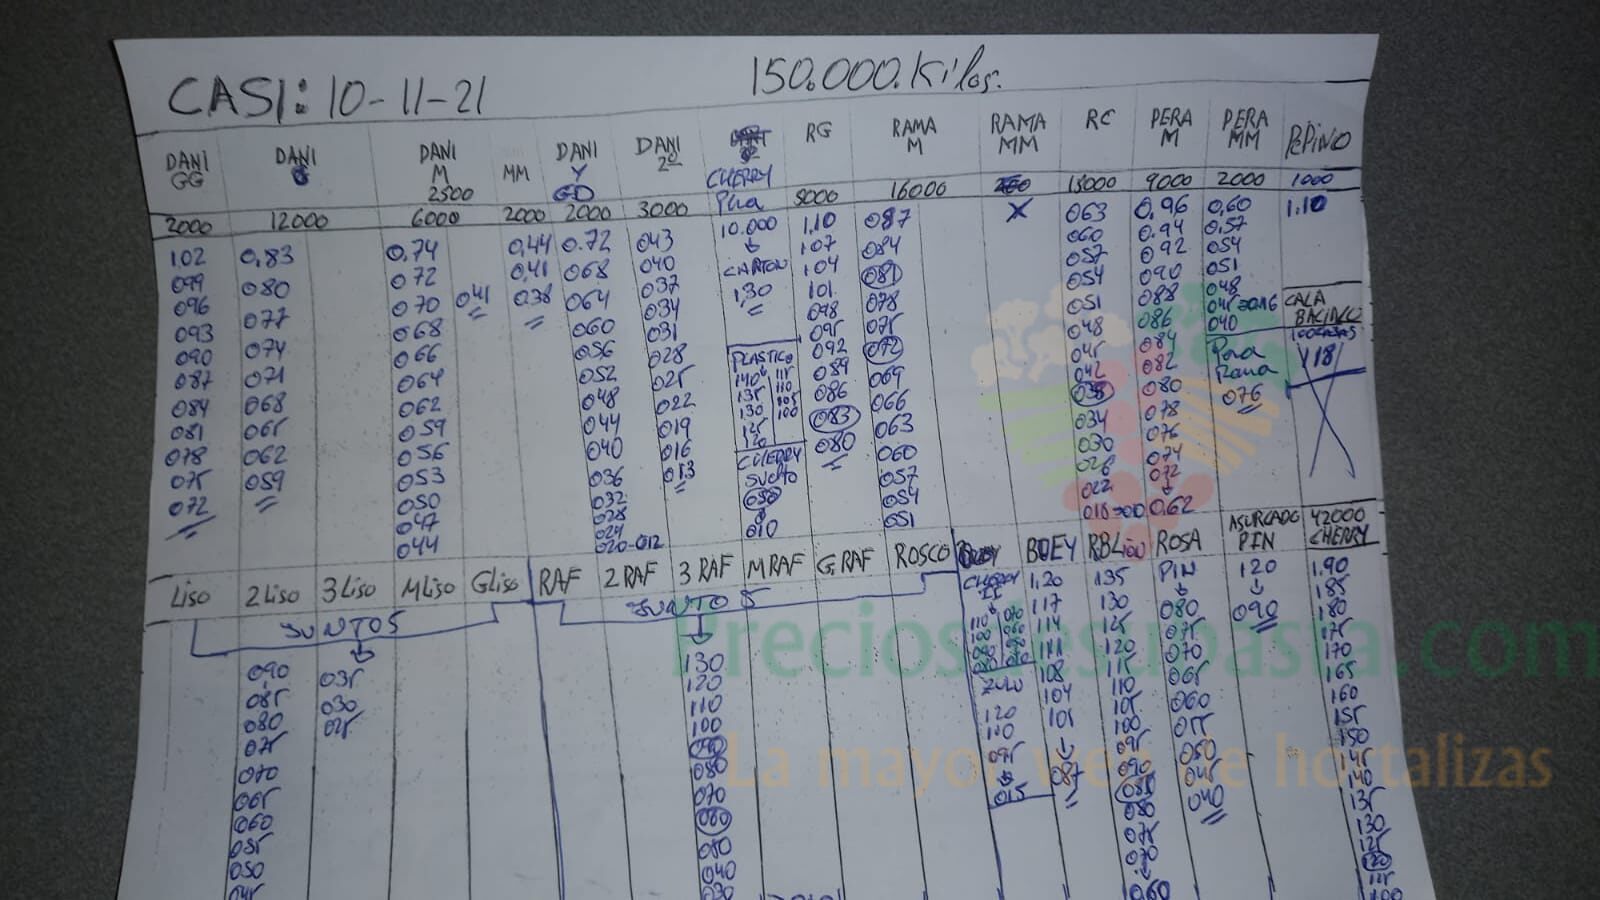 CASI: 10-11-21 150.000.Kilos.
DANI GG DANI G DANI M MM DANI Y GD DANI 2º CHERRY Pera RG RAMA M RAMA MM RC PERA M PERA MM PEPINO
2500
2000 12000 6000 2000 2000 3000 10.000 5000 16000 X 15000 9000 2000 1000
102 0,83 0,74 0,44 0.72 043 CARTON 1,10 087 063 0,96 0,60 1.10
099 080 072 0,41 068 040 1,30 107 084 060 0.94 0,57
096 077 070 041 0,38 064 037 104 081 057 092 054
093 074 068 060 034 101 078 054 090 051
090 071 066 056 031 098 075 051 088 048
087 068 064 052 028 095 072 048 086 045-016
084 065 062 048 025 092 069 045 084 040
081 062 059 044 022 089 066 042 082
078 059 056 040 019 086 063 038 080
075 053 036 016 083 060 034 078
072 050 032 013 080 057 030 076
047 028 054 026 074
044 024 051 022 072
020-012 018-010 0,62
PLASTICO
140 115
135 110
130 105
125 100
120
CHERRY
SUELTO
050
010
Pera
Rama
076
CALA
BACINES
100CAJAS
118
LISO 2 LISO 3 LISO M LISO G LISO RAF 2 RAF 3 RAF M RAF G RAF ROSCO BUEY RBLISO ROSA ASURCADO PIN 42000 CHERRY
JUNTOS JUNTOS
090 035
085 030
080 025
075
070
065
060
055
050
045
130
120
110
100
090
080
070
060
050
040
030
CHERRY
II
110
100
090
080
120
110
095
015
1,20
117
114
111
108
104
101
087
135
130
125
120
115
110
105
100
095
090
085
080
075
070
0,60
PIN
080
075
070
065
060
055
050
045
040
120
090
1.90
185
180
175
170
165
160
155
150
145
140
135
130
125
120
115
100
Preciosdesubasta.com
La mayor web de hortalizas